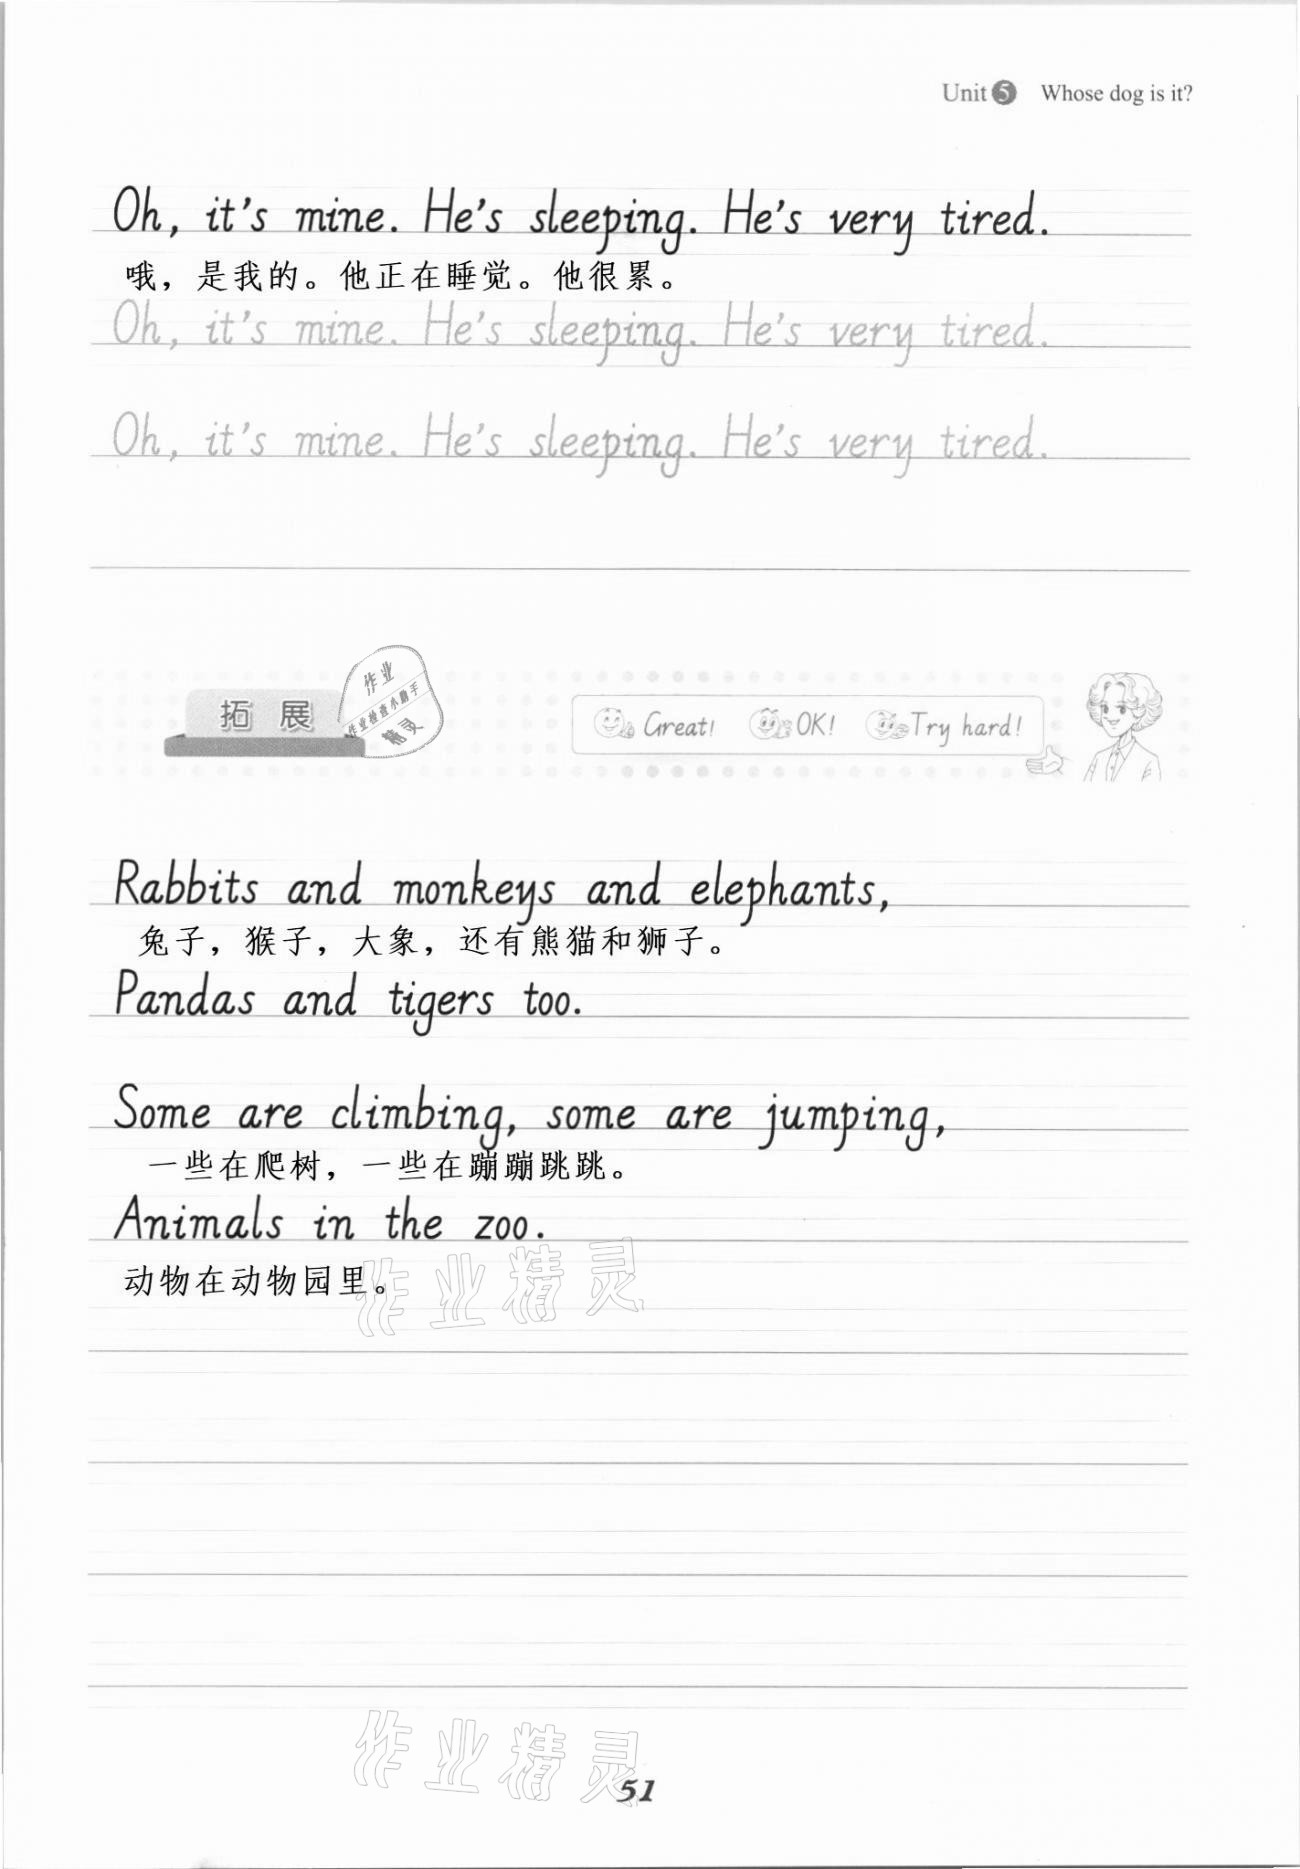 Unit 5 Whose dog is it?
Oh, it's mine. He's sleeping. He's very tired.
哦，是我的。他正在睡觉。他很累。
Oh, it's mine. He's sleeping. He's very tired.
Oh, it's mine. He's sleeping. He's very tired.
作业
作业检查小助手
精灵
拓展
Great! OK! Try hard!
Rabbits and monkeys and elephants,
兔子，猴子，大象，还有熊猫和狮子。
Pandas and tigers too.
Some are climbing, some are jumping,
一些在爬树，一些在蹦蹦跳跳。
Animals in the zoo.
动物在动物园里。
作业精灵
作业精灵
51